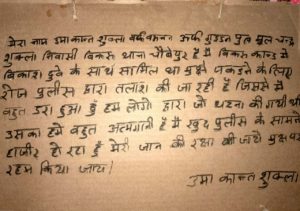 मेरा नाम उमा कान्त शुक्ला उर्फ गुड्डन पुत्र मूल चन्द्र
शुक्ला निवासी विकरू थाना चौबेपुर है मैं विकरू काण्ड में
विकाश दुबे के साथ सामिल था मुझे पकड़ने के लिए
रोज पुलीस द्वारा तलाश की जा रही है जिससे मैं
बहुत डरा हुआ हूँ हम लोगो द्वारा जो घटना की गयी थी
उसका हमें बहुत आत्मग्लानी है मैं खुद पुलीस के सामने
हाजीर हो रहा हूँ मेरी जान की रक्षा की जाये मुझ पर
रहम किया जाय।
उमा कान्त शुक्ला